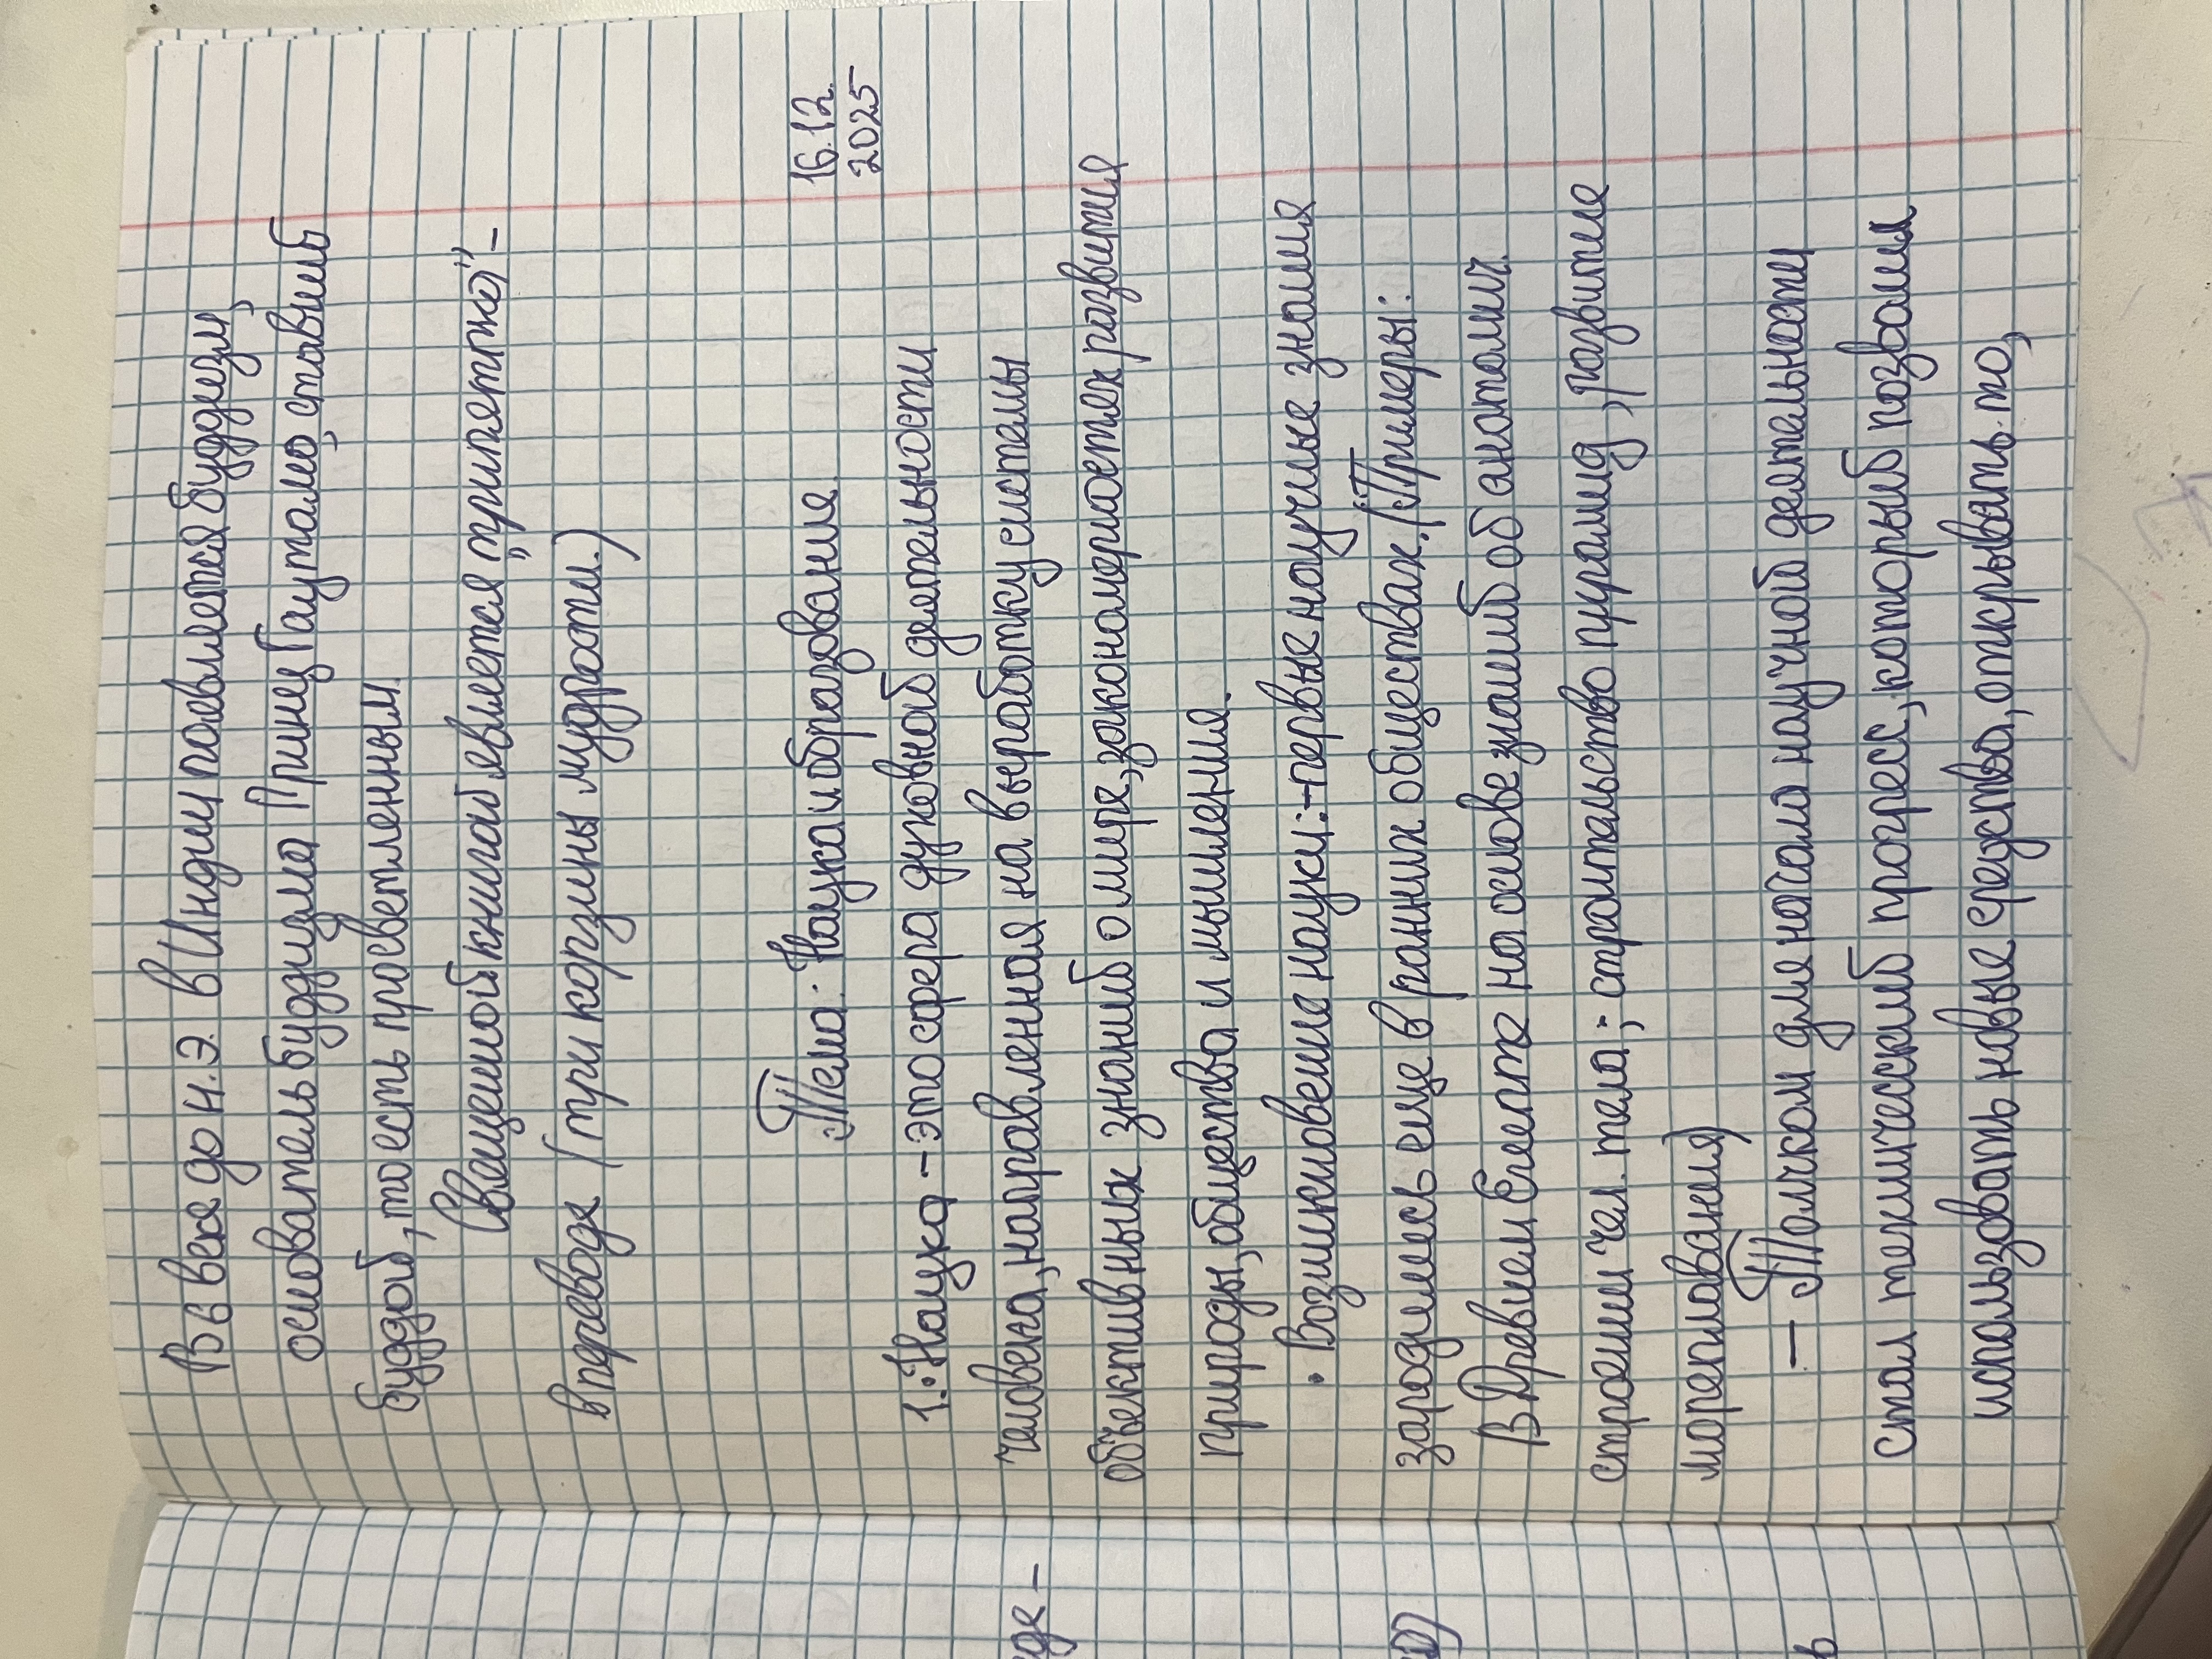 В 6 веке до н.э. в Индии появляется буддизм,
основатель буддизма Принц Гаутама, ставший
буддой, то есть просветленным.
Священной книгой является "трипятика" -
в переводе (три корзины мудрости.)
16.12.
2025
Тема: Наука и образование.
1. • Наука - это сфера духовной деятельности
человека, направленная на выработку системы
объективных знаний о мире, закономерностях развития
природы, общества и мышления.
• Возникновение науки: - первые научные знания
зародились еще в ранних обществах. (Примеры:
В Древнем Египте на основе знаний об анатомич.
строении чел. тела; • строительство пирамид, развитие
мореплавания)
— Толчком для начала научной деятельности
стал технический прогресс, который позволил
использовать новые средства, открывать то,
где -
в